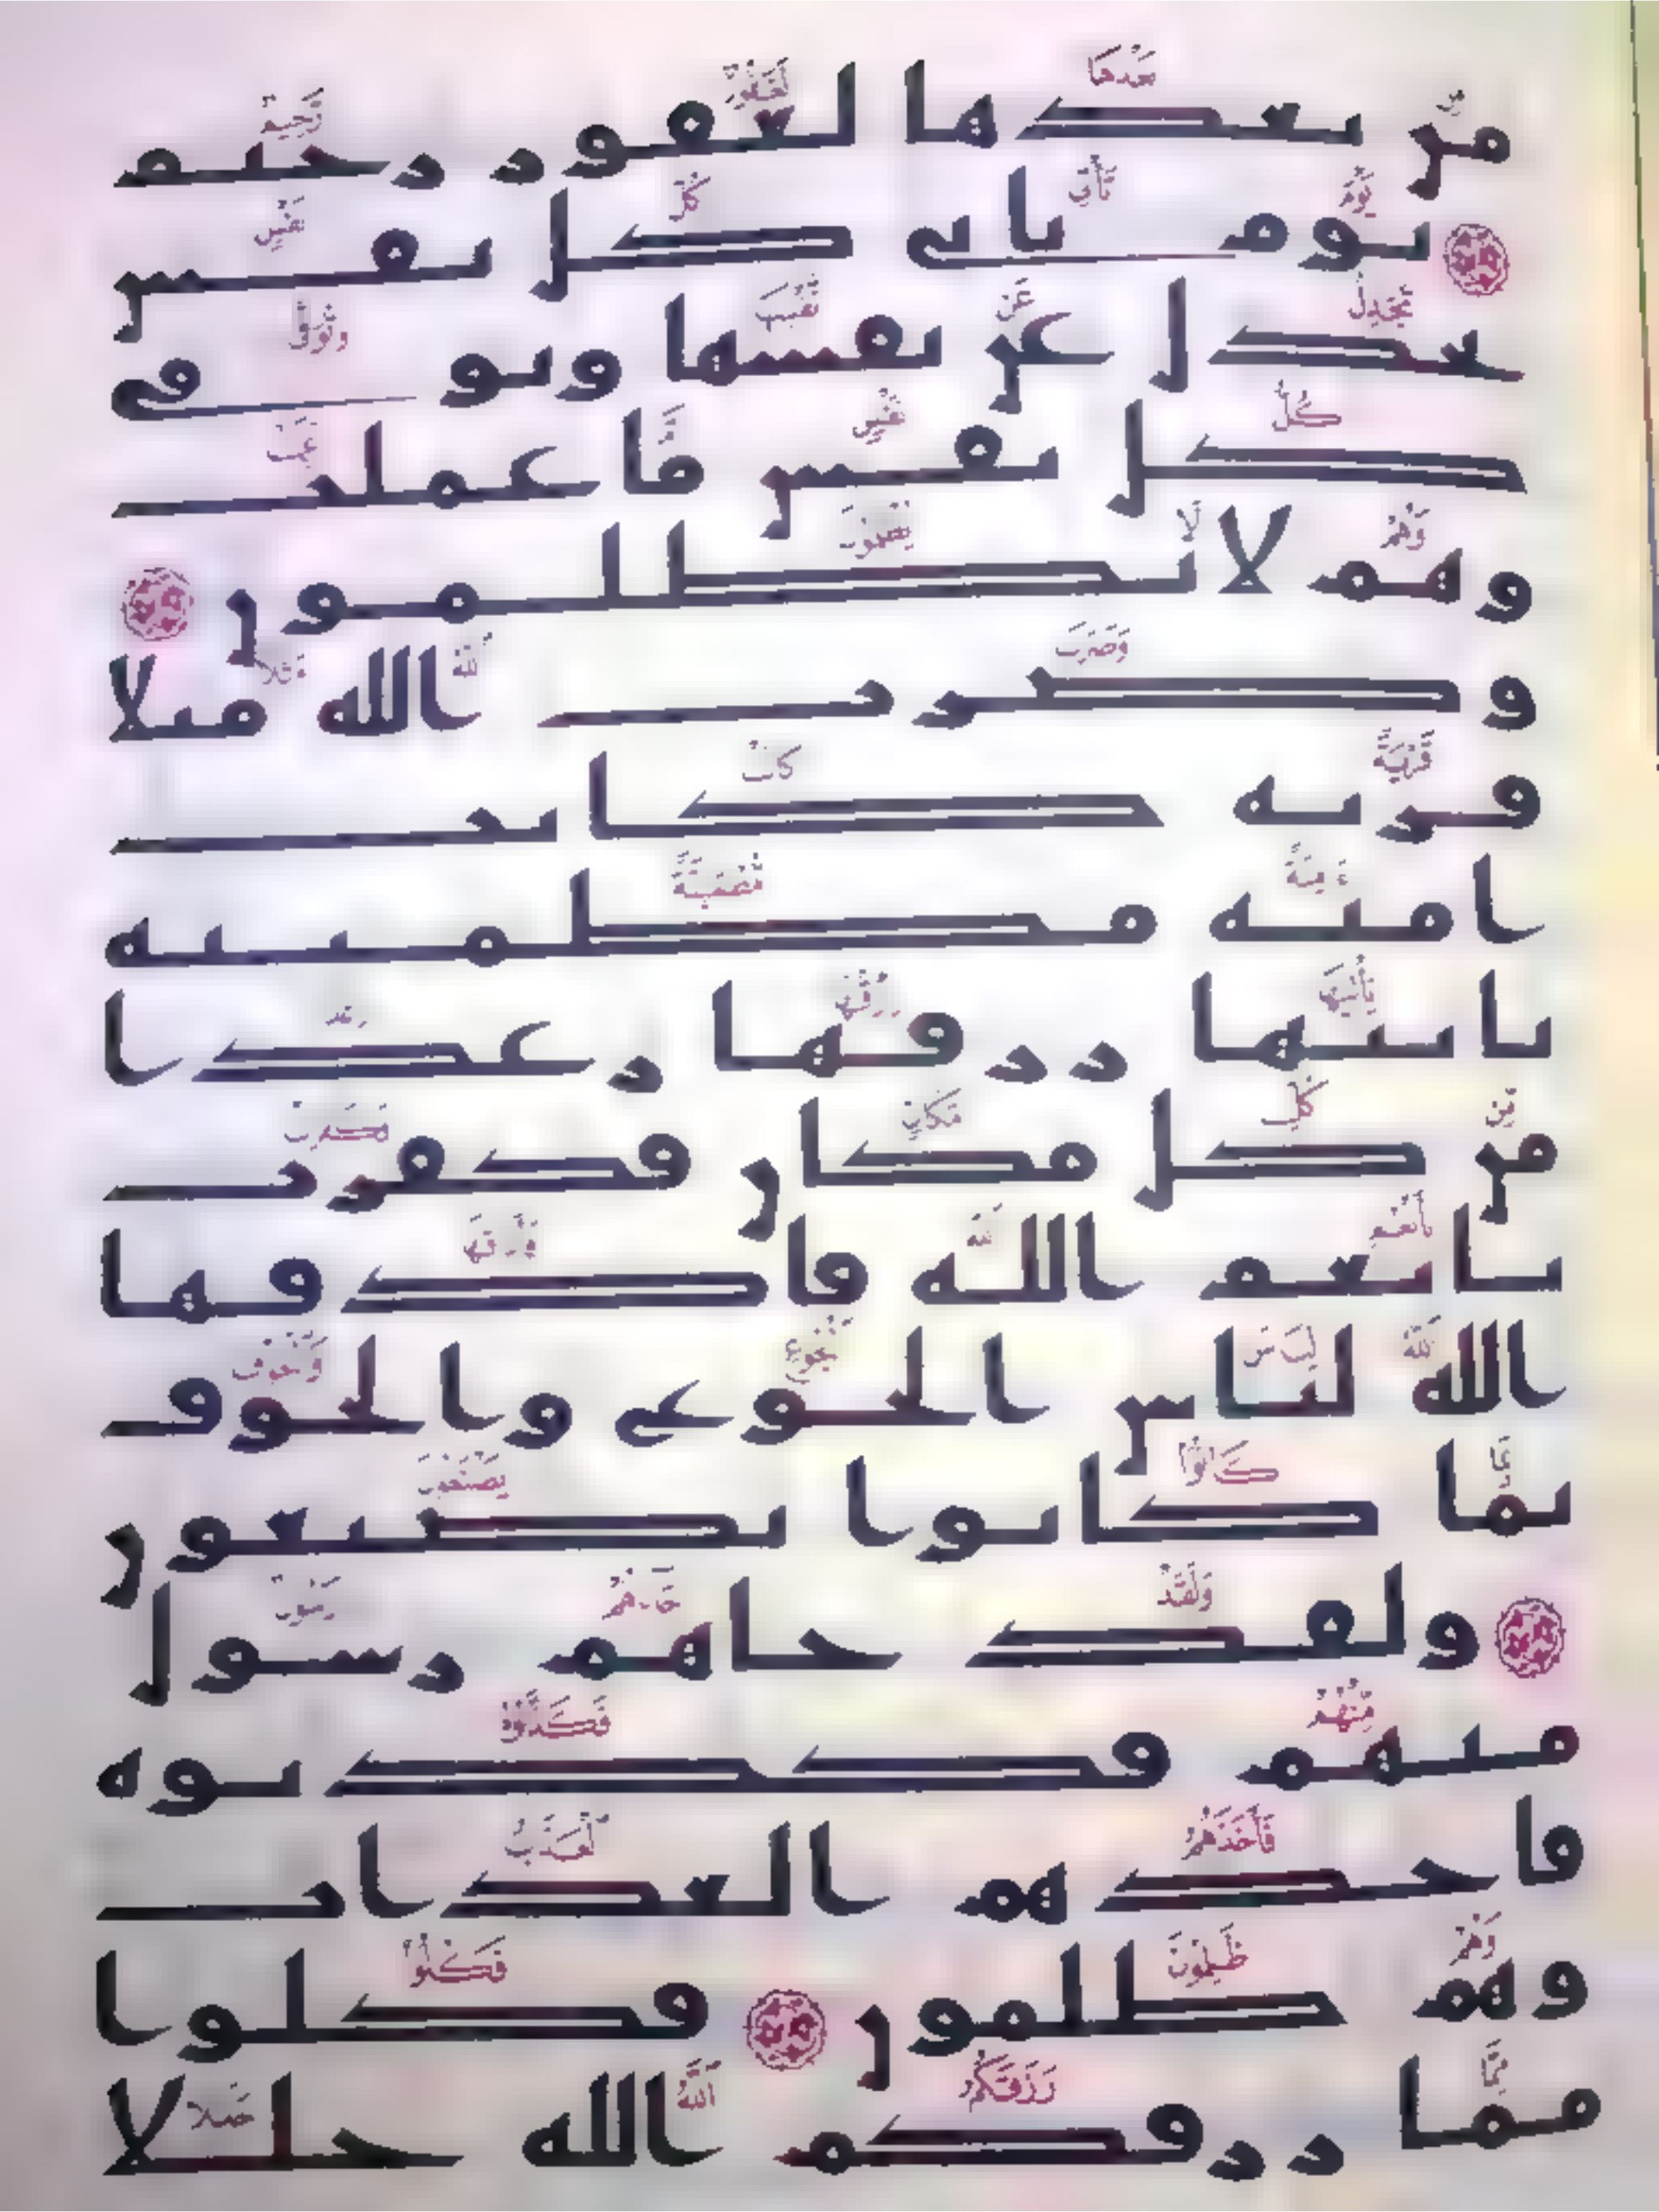 من بعدها لغفور رحيم
يوم تاتي كل نفس
تجدل عن نفسها وتوفى
كل نفس ما عملت
وهم لا يظلمون
وضرب الله مثلا
قرية كانت
امنة مطمئنة
ياتيها رزقها رغدا
من كل مكان فكفرت
بانعم الله فاذقها
الله لباس الجوع والخوف
بما كانوا يصنعون
ولقد جاهم رسول
منهم فكذبوه
فاخذهم العذاب
وهم ظلمون فكلوا
مما رزقكم الله حللا